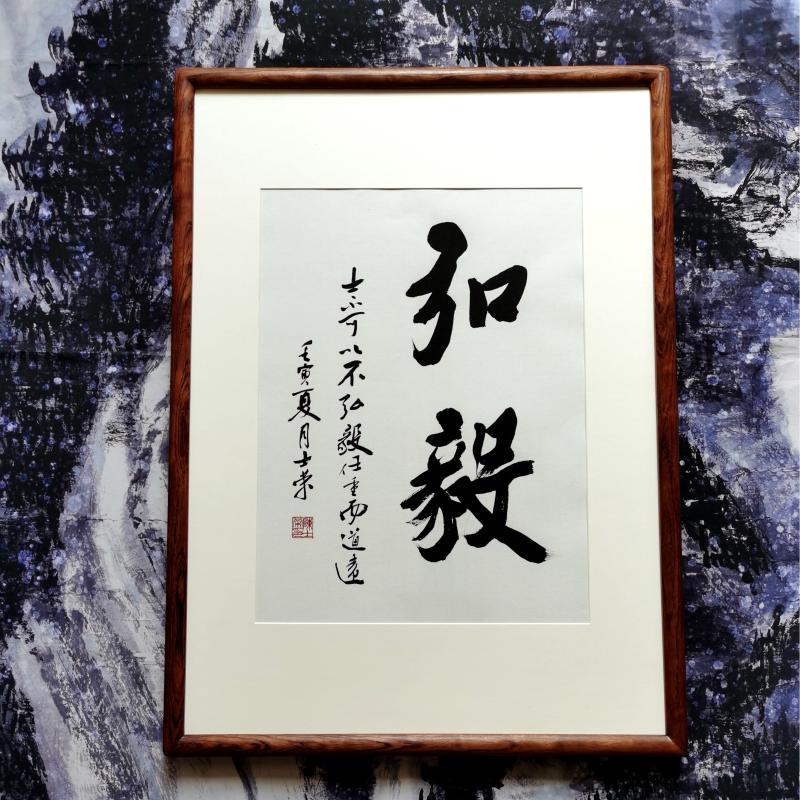 弘毅
士不可以不弘毅任重而道遠
壬寅夏月士荣